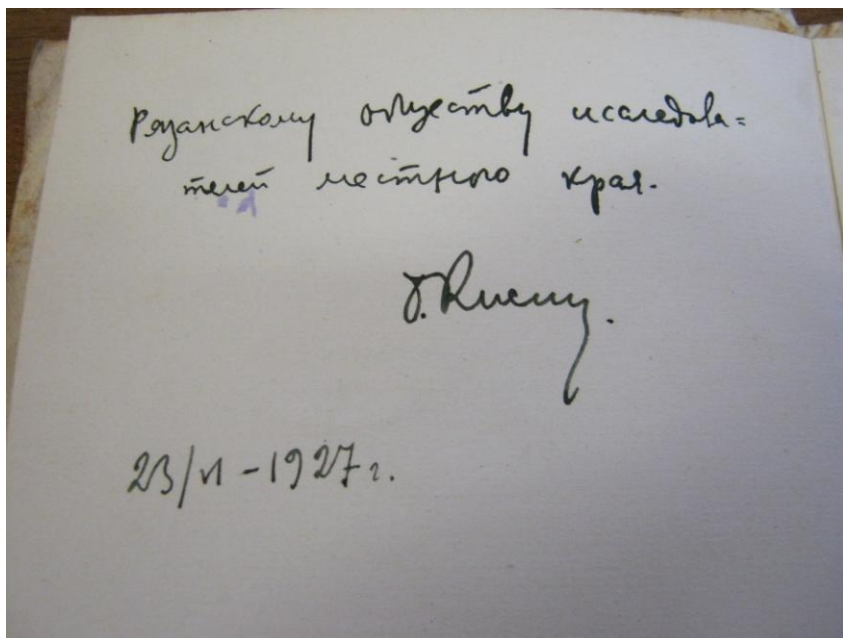 Рязанскому обществу исследова=
телей местного края.
23/VI - 1927 г.